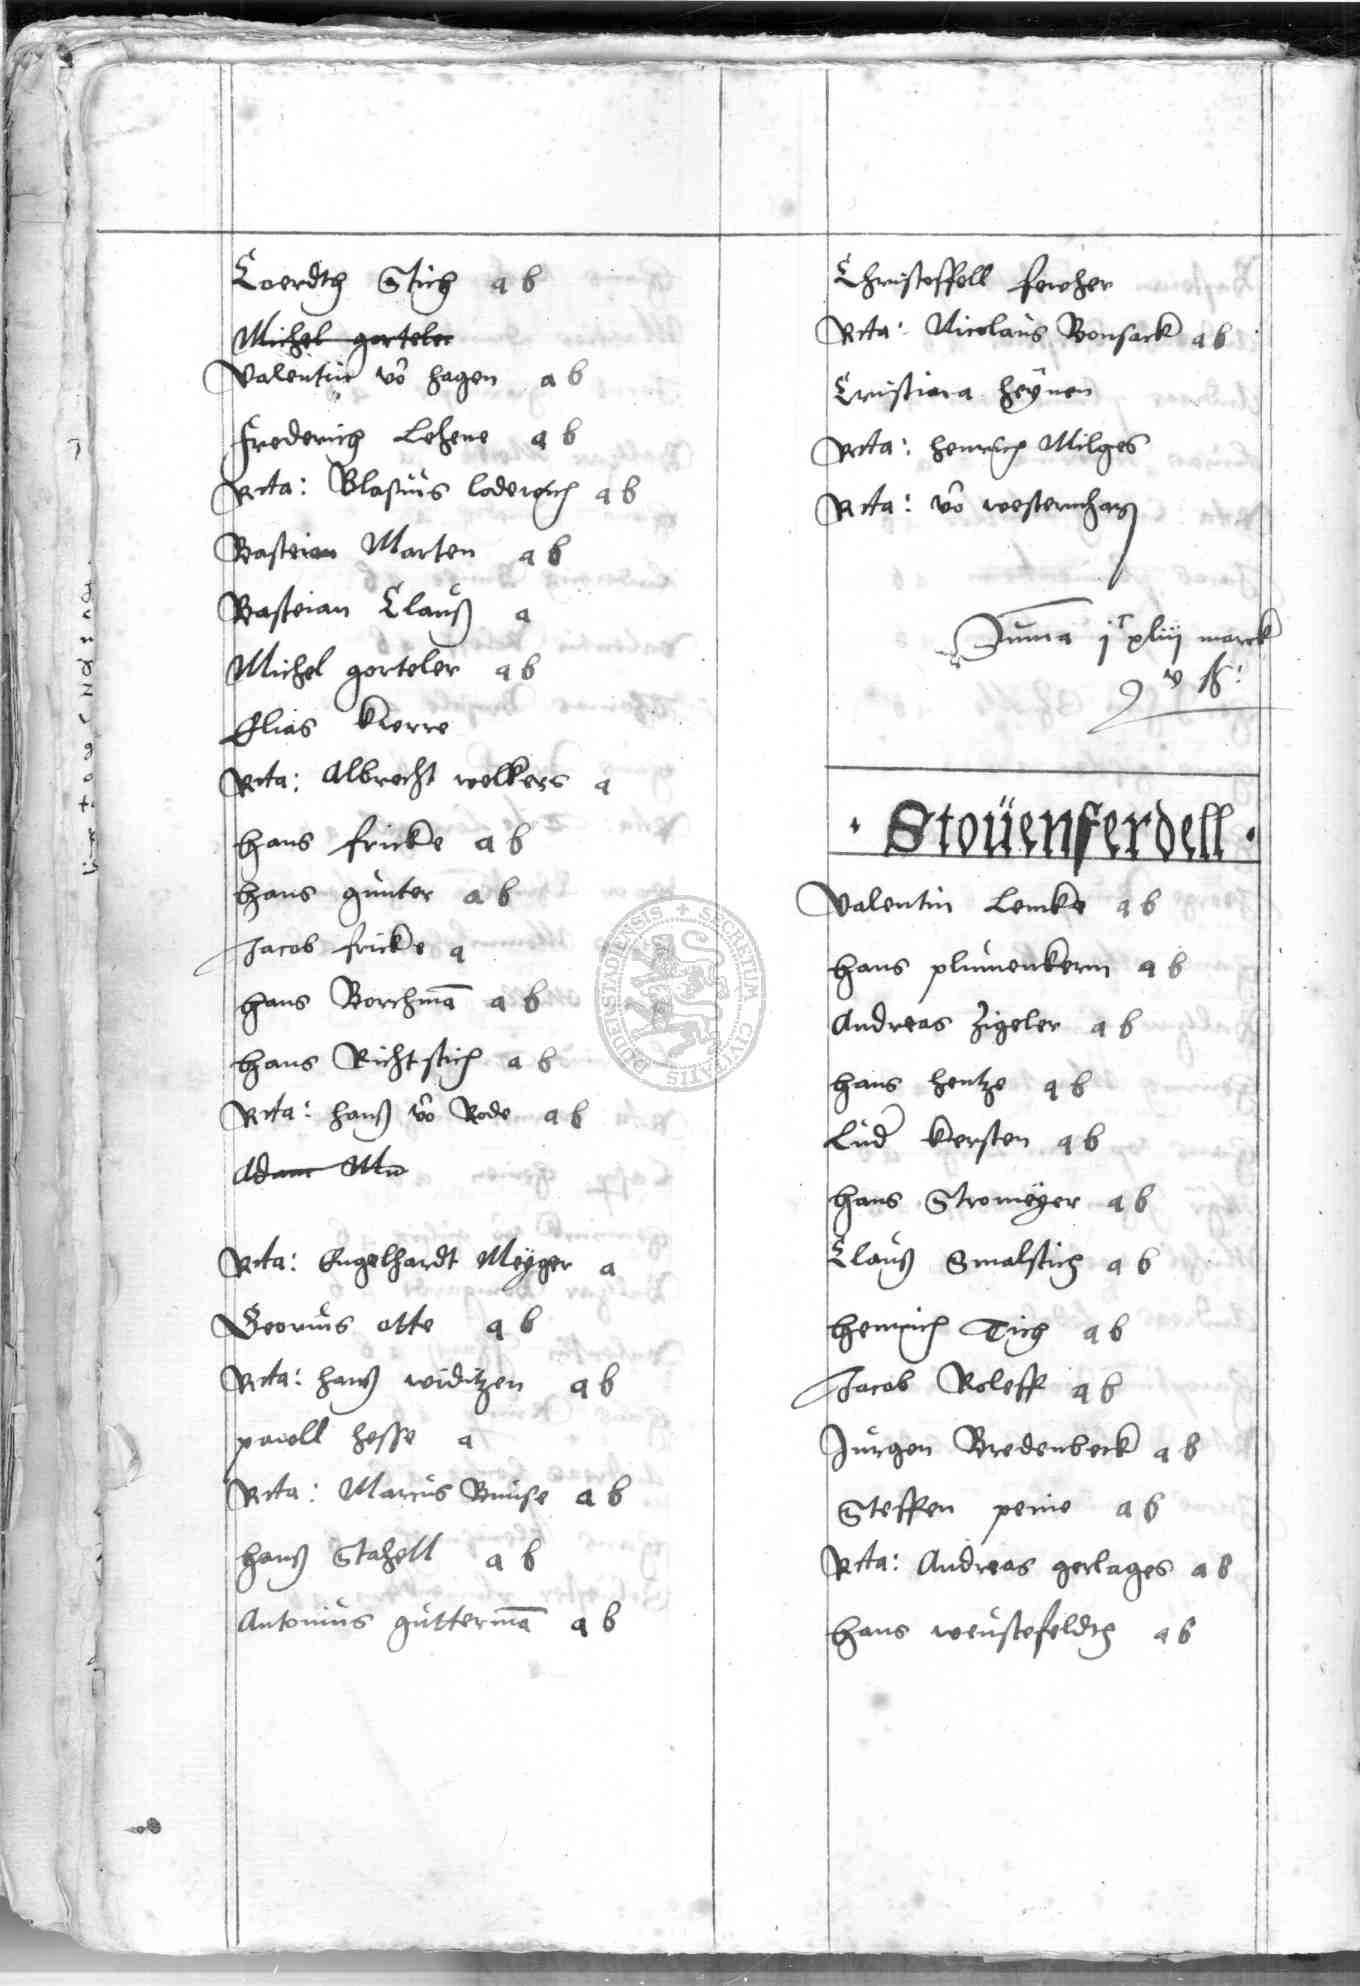 Coerdth Stich a b
Michel gorteler
Valentin vo hagen a b
Frederich Lehene a b
Rcta: Blasius loderoich a b
Basteian Marten a b
Basteian Clauß a
Michel gorteler a b
Elias Kerre
Rcta: Albrecht welkers a
hans fricke a b
hans gunter a b
Jacob fricke a
hans Borchma a b
hans Richtstich a b
Rcta: hanß vo Rode a b
Adam Mu
Rcta: Engelhardt Meyger a
Georius otte a b
Rcta: hanß widitzen a b
pawell hesse a
Rcta: Marcus Bunse a b
hanß Stahell a b
Antonius gutterma a b
Christoffell
Rcta: Nicolaus Bonsack a b
Cristiana heÿnen
Rcta: henrich Milges
Rcta: vo westernhaß
Suma jc xliij marck
v ß:
· Stoüenferdell ·
Valentin Lemke a b
hans plumenkern a b
Andreas Zigeler a b
hans hentze a b
Lud Kersten a b
hans Stromeÿer a b
Clauß Smalstich a b
henrich Tich a b
Jacob Roleff a b
Jurgen Bredenbeck a b
Steffen peine a b
Rcta: Andreas gerlages a b
hans weustefeldth a b
SECRETUM CIVITATIS DUDERSTADIENSIS